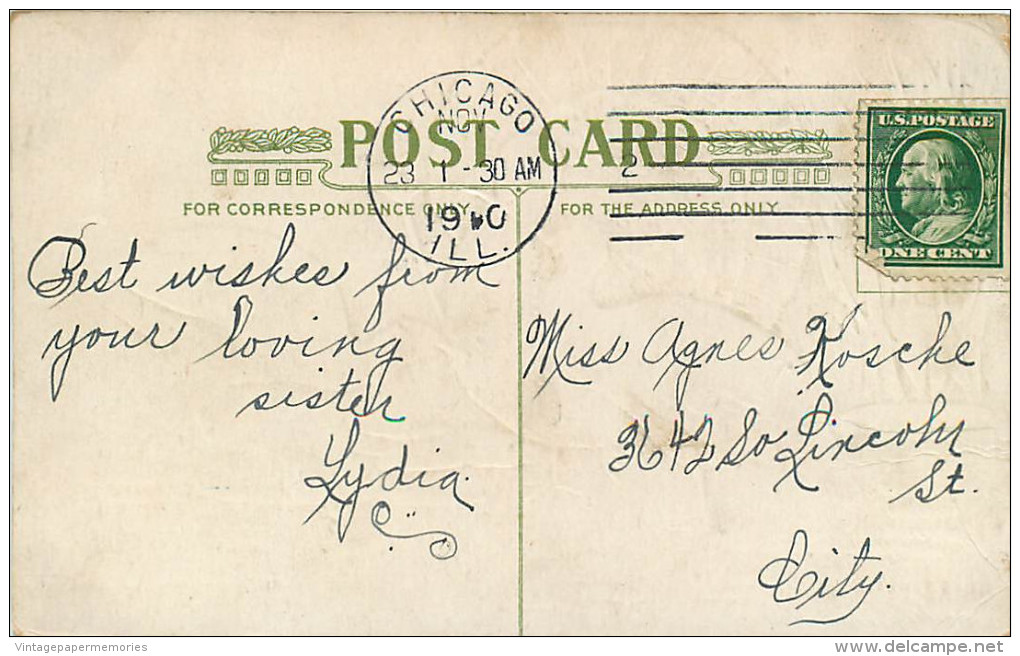 POST CARD
CHICAGO
NOV
23 1-30 AM
1910
ILL.
2
U.S. POSTAGE
ONE CENT
FOR CORRESPONDENCE ONLY
FOR THE ADDRESS ONLY
Best wishes from
your loving
sister
Lydia.
Miss Agnes Kosche
3642 So Lincoln
St.
City.
Vintagepapermemories
www.delcampe.net